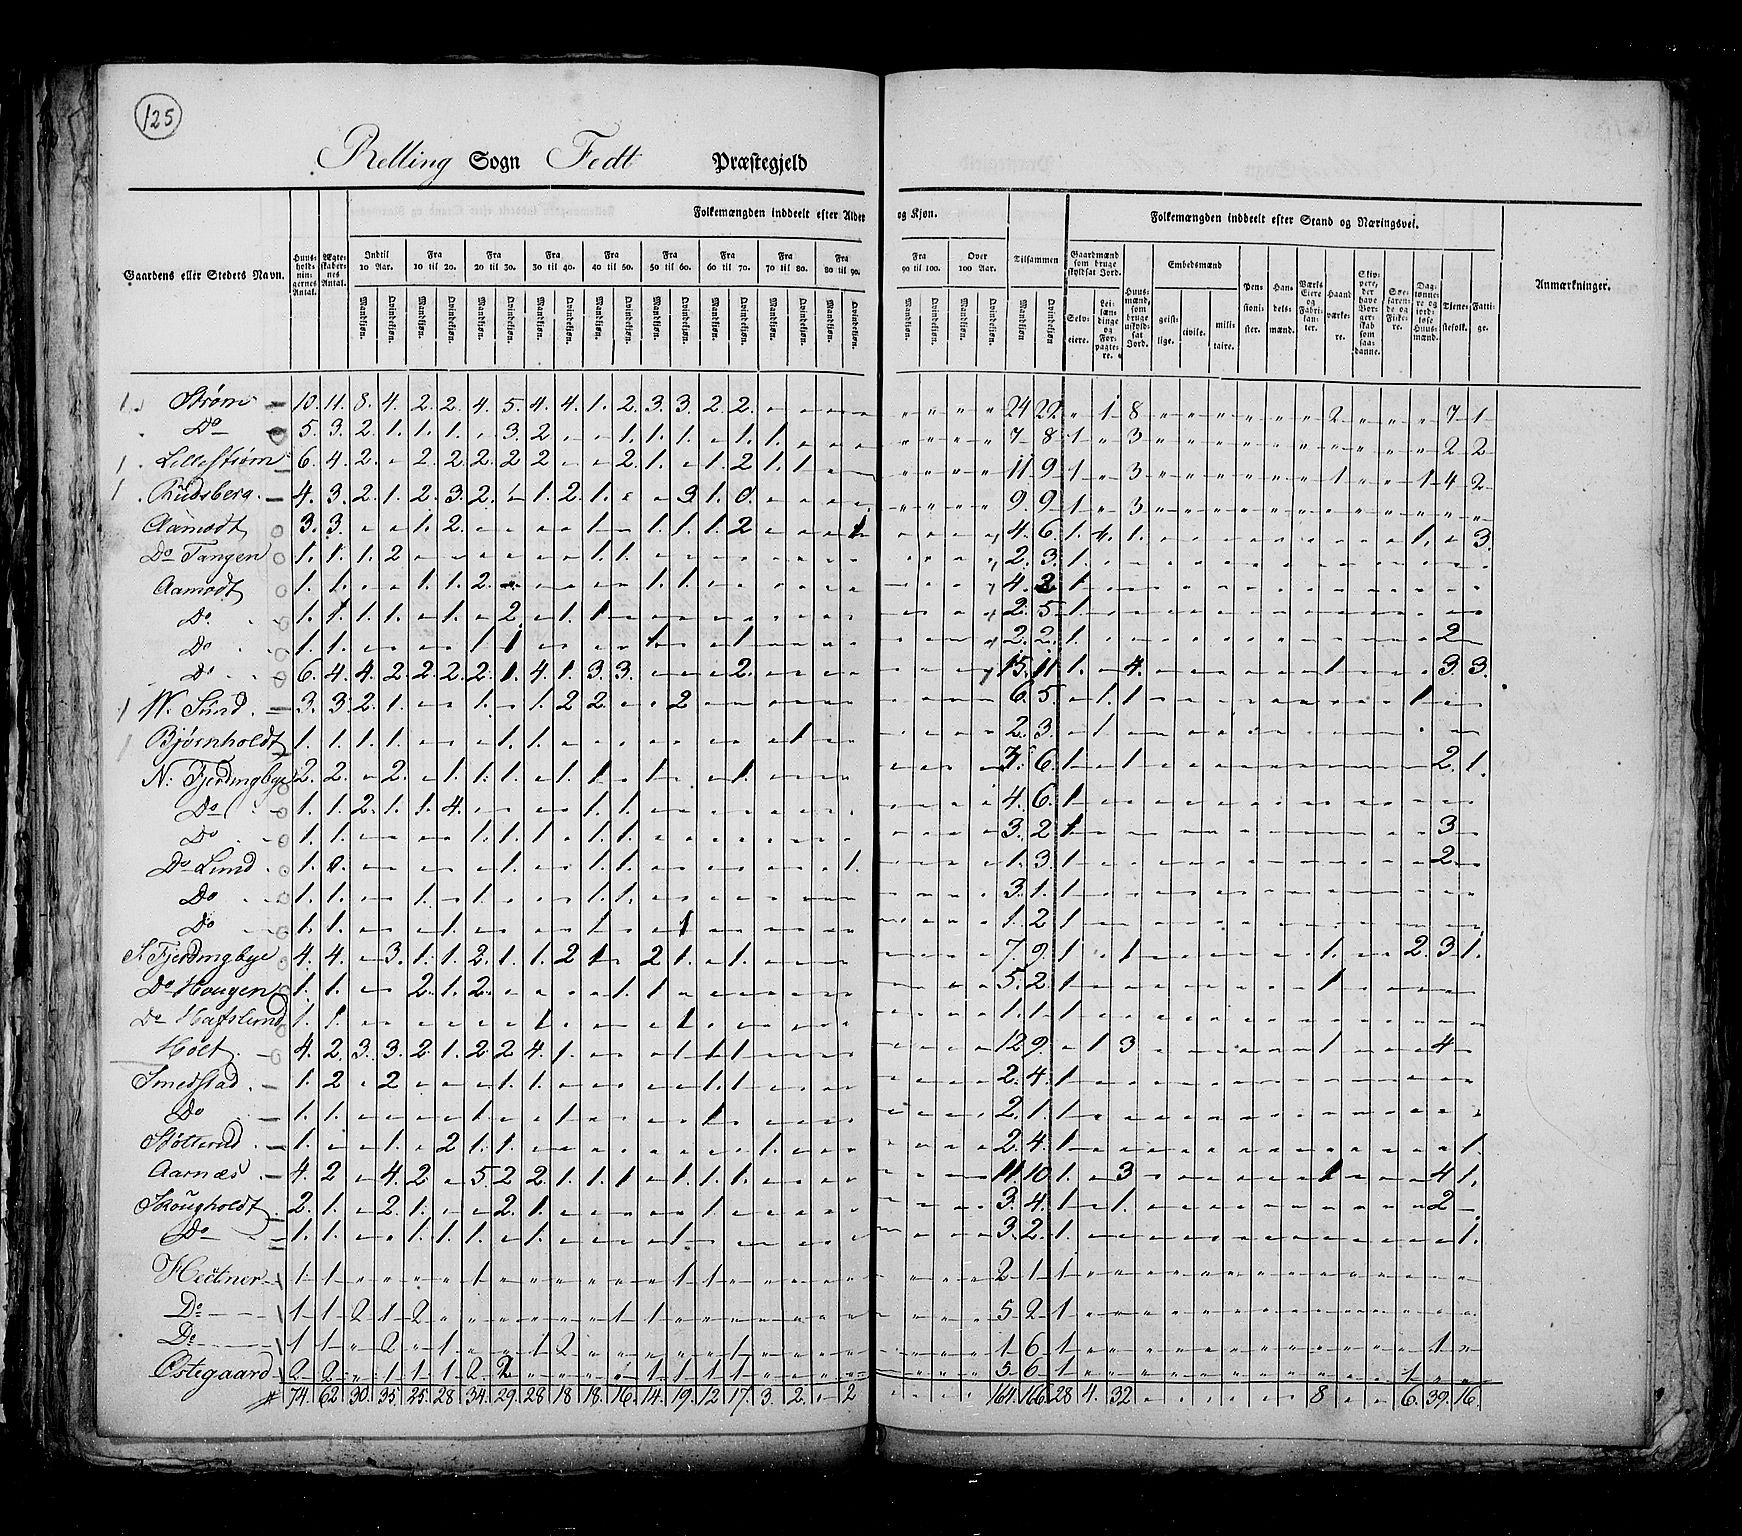 125
Relling Sogn Fedt Præstegjeld
Gaardens eller Stedets Navn.
Huusholdningernes Antal.
Ægteskabernes Antal.
Folkemængden inddeelt efter Alder og Kjøn.
Indtil 10 Aar. Fra 10 til 20. Fra 20 til 30. Fra 30 til 40. Fra 40 til 50. Fra 50 til 60. Fra 60 til 70. Fra 70 til 80. Fra 80 til 90. Fra 90 til 100. Over 100 Aar.
Mandkjøn. Qvindekjøn.
Tilsammen
Folkemængden inddeelt efter Stand og Næringsvei.
Gaardmænd som bruge skyldsat Jord.
Selveiere.
Leilændinge og Forpagtere.
Huusmænd, som bruge uskyldsat Jord.
Embedsmænd
geistlige. civile. militaire.
Pensionister.
Handelsmænd.
Værks Eiere og Fabrikanter.
Haandværkere.
Skippere, der have Borgerskab som saadanne.
Søefarende og Fiskere.
Daglønnere og jordløse Huusmænd.
Tienestefolk.
Fattige.
Anmærkninger.
Strøm 10. 11. 8. 4. 2. 2. 4. 5. 4. 4. 1. 2. 3. 3. 2. 2. 24 22 1 8 2 7 1
Do 5. 3. 2. 1. 1. 1. 3. 2 1. 1. 1. 1. 1. 7 8 1 3 2 2
Lillestrøm 6. 4. 2. 2. 2. 2. 2 2 2. 1. 1. 2 1. 1 11 9 1 3 1 1 4 2
Rudsberg 4. 3. 2. 1. 2. 3. 2. 1. 2. 1. 3 1. 0. 9. 9 1 3
Aamodt 3. 3. 1. 2. 1 1. 1. 1. 2 1 4. 6. 1. 1. 1. 1. 3.
Do Tangen 1. 1. 1. 2 1. 1. 2. 3. 1.
Aamodt 1. 1. 1. 1. 2. 1. 1. 4. 2 1
Do 1. 1. 1. 1. 1. 2 1. 1 2. 5. 1.
Do 1. 1. 1 1 1 1 2. 2. 1. 2
Do 6. 4. 4. 2. 2. 2. 2. 1. 4. 1. 3. 3. 2. 15. 11 1. 4. 1 3. 3.
W. Sund. 3. 3. 2. 1. 1. 1. 2 2. 2 6. 5. 1. 1 1
Bjørnholdt 1. 1. 1. 1. 1. 1. 1 2. 3. 1
N: Fjerdingbye 2. 2. 2. 1. 1. 1. 1. 1. 1. 1. 7. 6. 1 1 2. 1.
Do 1. 1. 2. 1. 1. 4. 1. 1. 4. 6. 1
Do 1. 1. 1. 1. 1. 1. 1. 3. 2. 1 3
Do Lund. 1. 1. 1. 1. 1. 1. 3. 1 2
Do 1. 1. 1. 1. 1. 1. 3. 1. 1
Do 1. 1. 1. 1 1 1. 2 1
S Fjerdingbye 4. 4. 3. 1. 1. 2. 1. 1. 2 1 2 1. 1. 7. 9. 1 1 1. 2. 3 1.
Do Hougen 1. 1. 2. 1. 2. 1. 1. 5. 2. 1 1
Do Hafslund 1. 1. 1. 1. 1. 1. 1
Holt. 4. 2. 3. 3. 2. 1. 2 2 4. 1. 1 1 1 12 9. 1 3 1 4
Smedstad. 1. 2 2 1. 1. 1. 1. 2. 4. 1
Do 1. 1. 1. 1 1 2. 1. 1
Støtterud. 1. 1. 2 1. 1. 1. 2. 4. 1 1.
Aarnæs. 4. 2 4. 2 5. 2 2. 1. 1. 1 1. 1. 1. 11. 10 1. 3 1 4 1.
Skougholdt. 2. 1. 2. 1. 2. 1. 1. 3. 4. 1 1. 2
Do 1. 1. 1. 1. 1. 1. 1. 3. 2. 1. 1.
Heitner 1 1 1 1 1 2 1 1
Do 1 1 2 1 2 1 1 5 2 1
Do 1 1 2 1 1 2 1 1 6 1 1
Østegaard 2 2 1 1 1 2 2 1 1 1 1 5 6 1 1
74. 62. 30. 35. 25. 28 34. 29. 28 18 18. 16. 14. 19. 12 17. 3. 2. 2 164. 166. 28 4. 32 8 6. 39. 16.